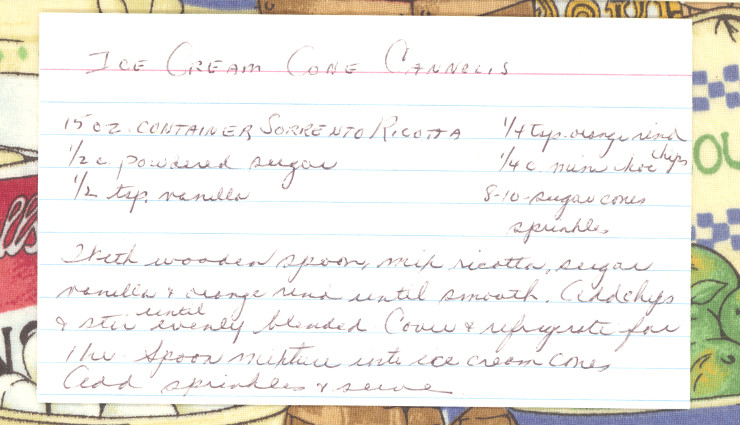 ICE CREAM CONE CANNOLIS
15 oz. CONTAINER SORRENTO RICOTTA
1/2 c. powdered sugar
1/2 tsp. vanilla
1/4 tsp. orange rind
1/4 c. mini choc chips
8-10 - sugar cones
sprinkles
With wooden spoon, mix ricotta, sugar
vanilla & orange rind until smooth. Add chips
& stir until evenly blended Cover & refrigerate for
1 hr. Spoon mixture into ice cream cones
Add sprinkles & serve